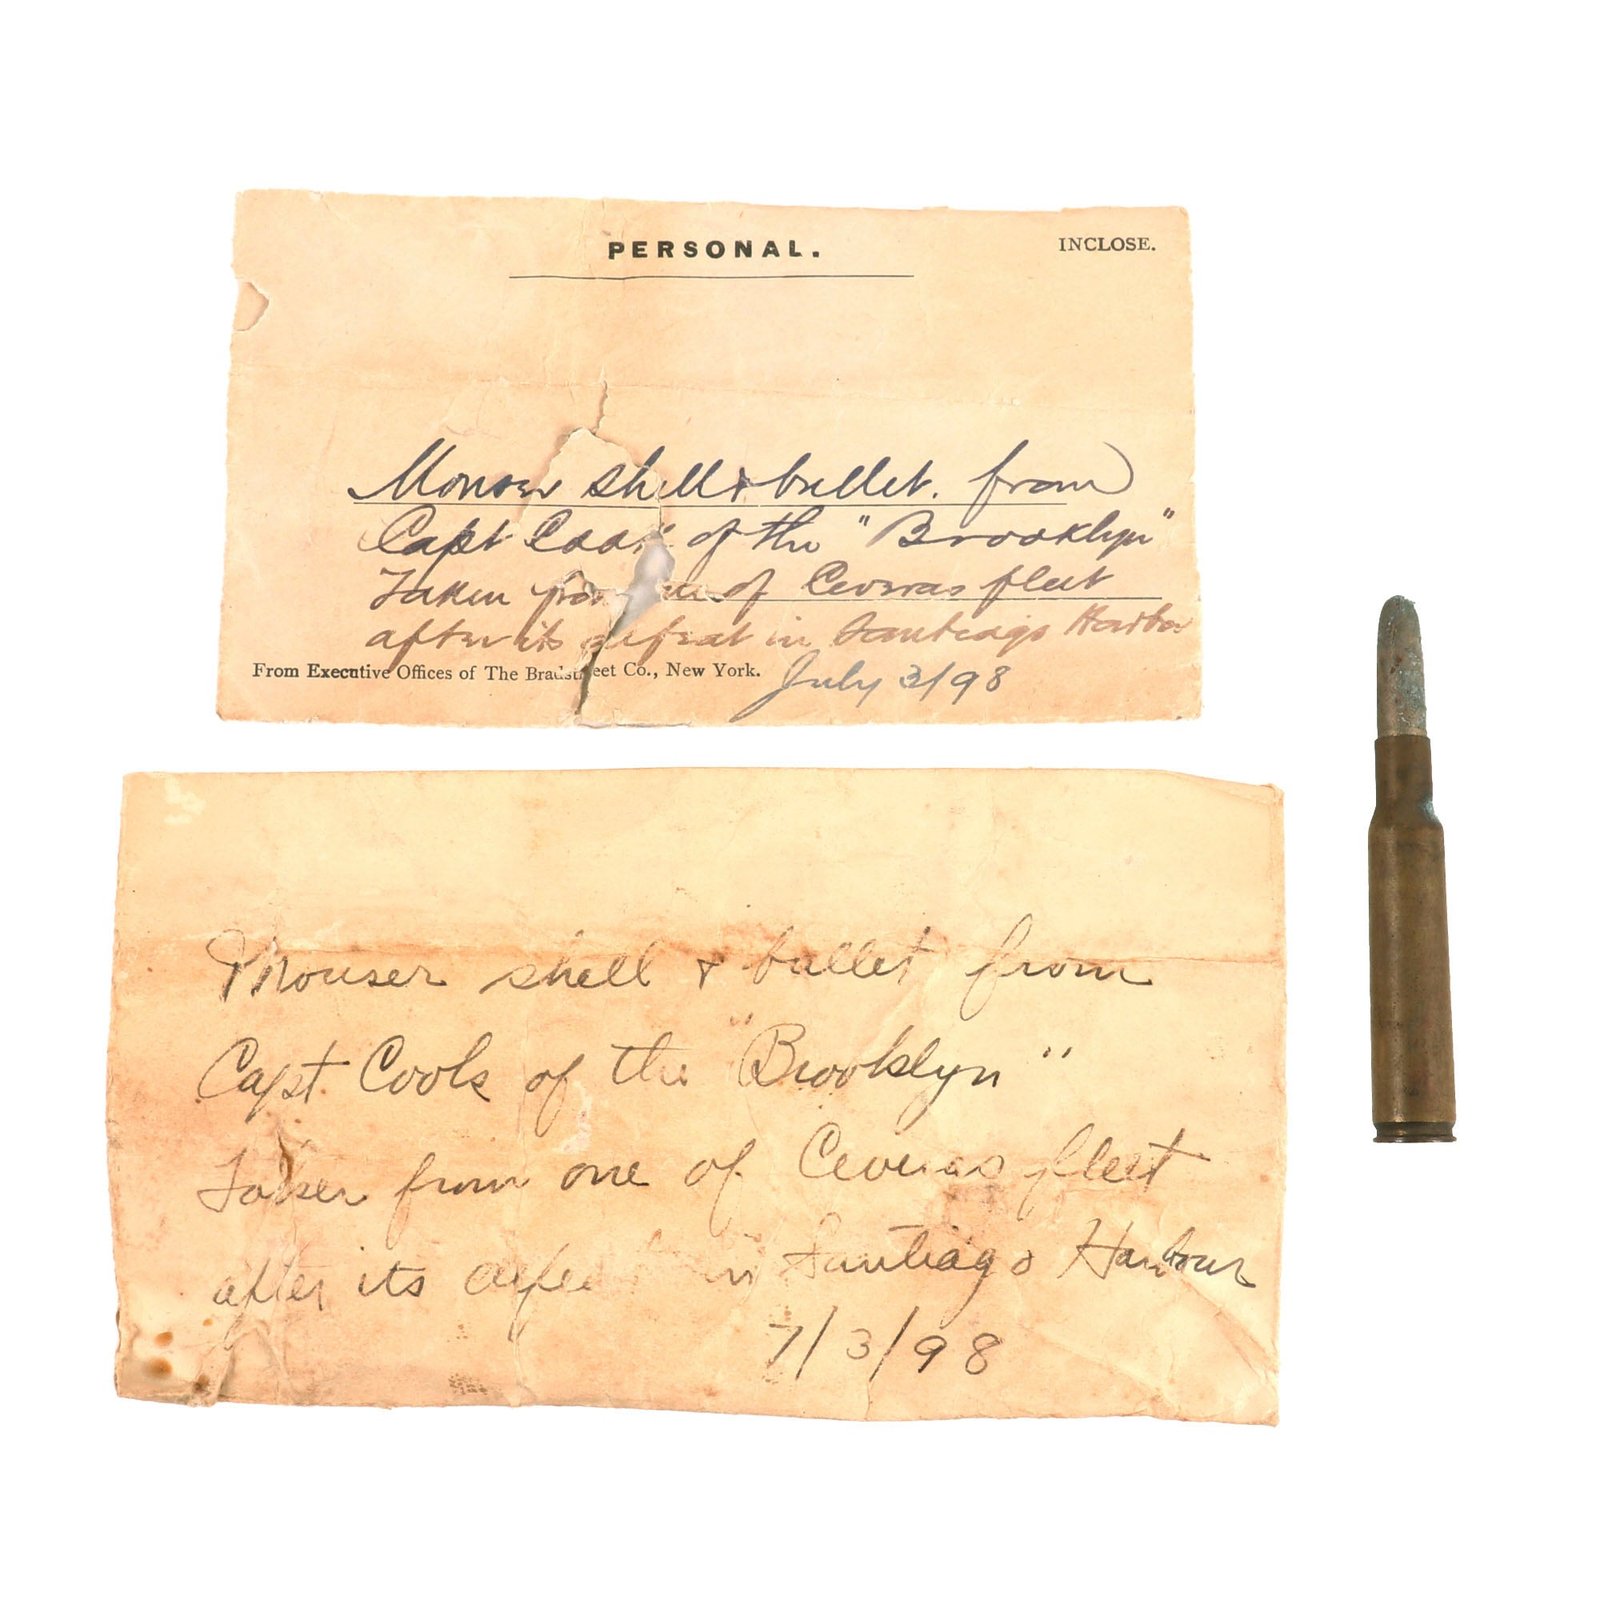 PERSONAL.
INCLOSE.
Mouser shell & bullet. from
Capt Cook of the "Brooklyn"
Taken from of Ceveras fleet
after its defeat in Santiago Harbor
From Executive Offices of The Bradstreet Co., New York.
July 3/98
Mouser shell & bullet from
Capt. Cook of the "Brooklyn"
Taken from one of Ceveras fleet
after its in Santiago Harbour
7/3/98